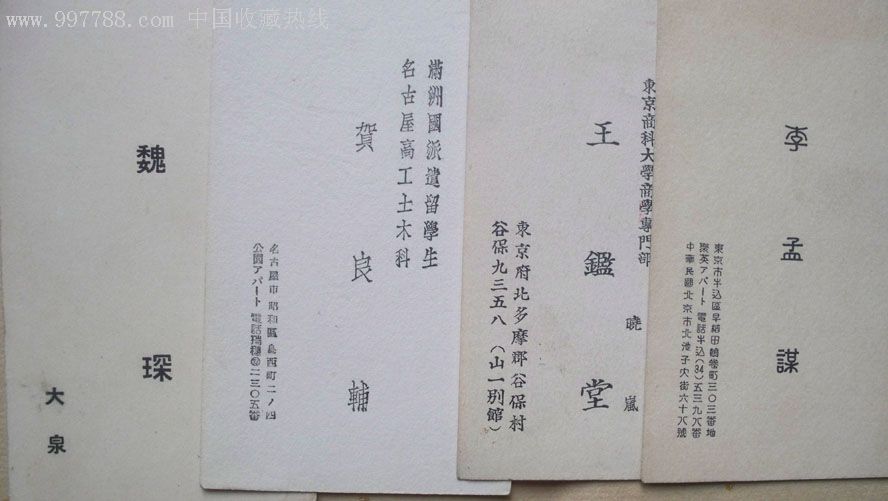 www.997788.com 中国收藏热线
東京市牛込區早稲田鶴巻町三〇三番地
聚英アパート 電話牛込(34)五三九八番
中華民國北京市北池子大街六十八號
李孟謀
東京商科大學商學專門部
王鑑堂
曉嵐
東京府北多摩郡谷保村
谷保九三五八（山一別館）
滿洲國派遣留學生
名古屋高工土木科
賀良輔
名古屋市昭和區島西町二ノ四
公園アパート 電話瑞穂二三〇五番
魏琛
大泉